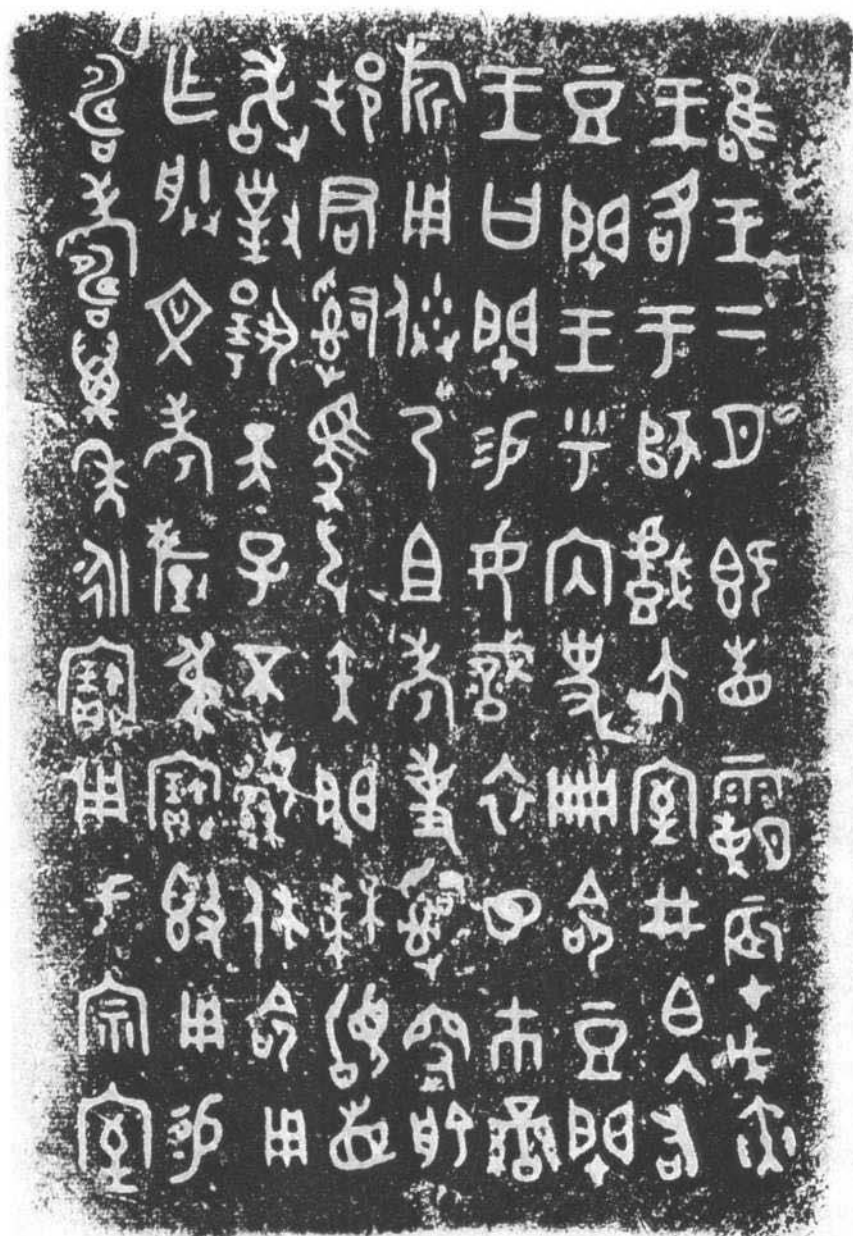 唯王二月既眚霸辰才戊寅
王各于師戲大室井白入右
豆閉王乎内史冊命豆閉
王曰閉易女戠衣⊙巿䜌
旂用倂乃且考事𤔲窔俞
邦君𤔲馬弓矢閉拜䭫首
敢對揚天子不顯休命用
乍朕文考釐叔寶𣪘用易
𠷎壽萬年永寶用于宗室